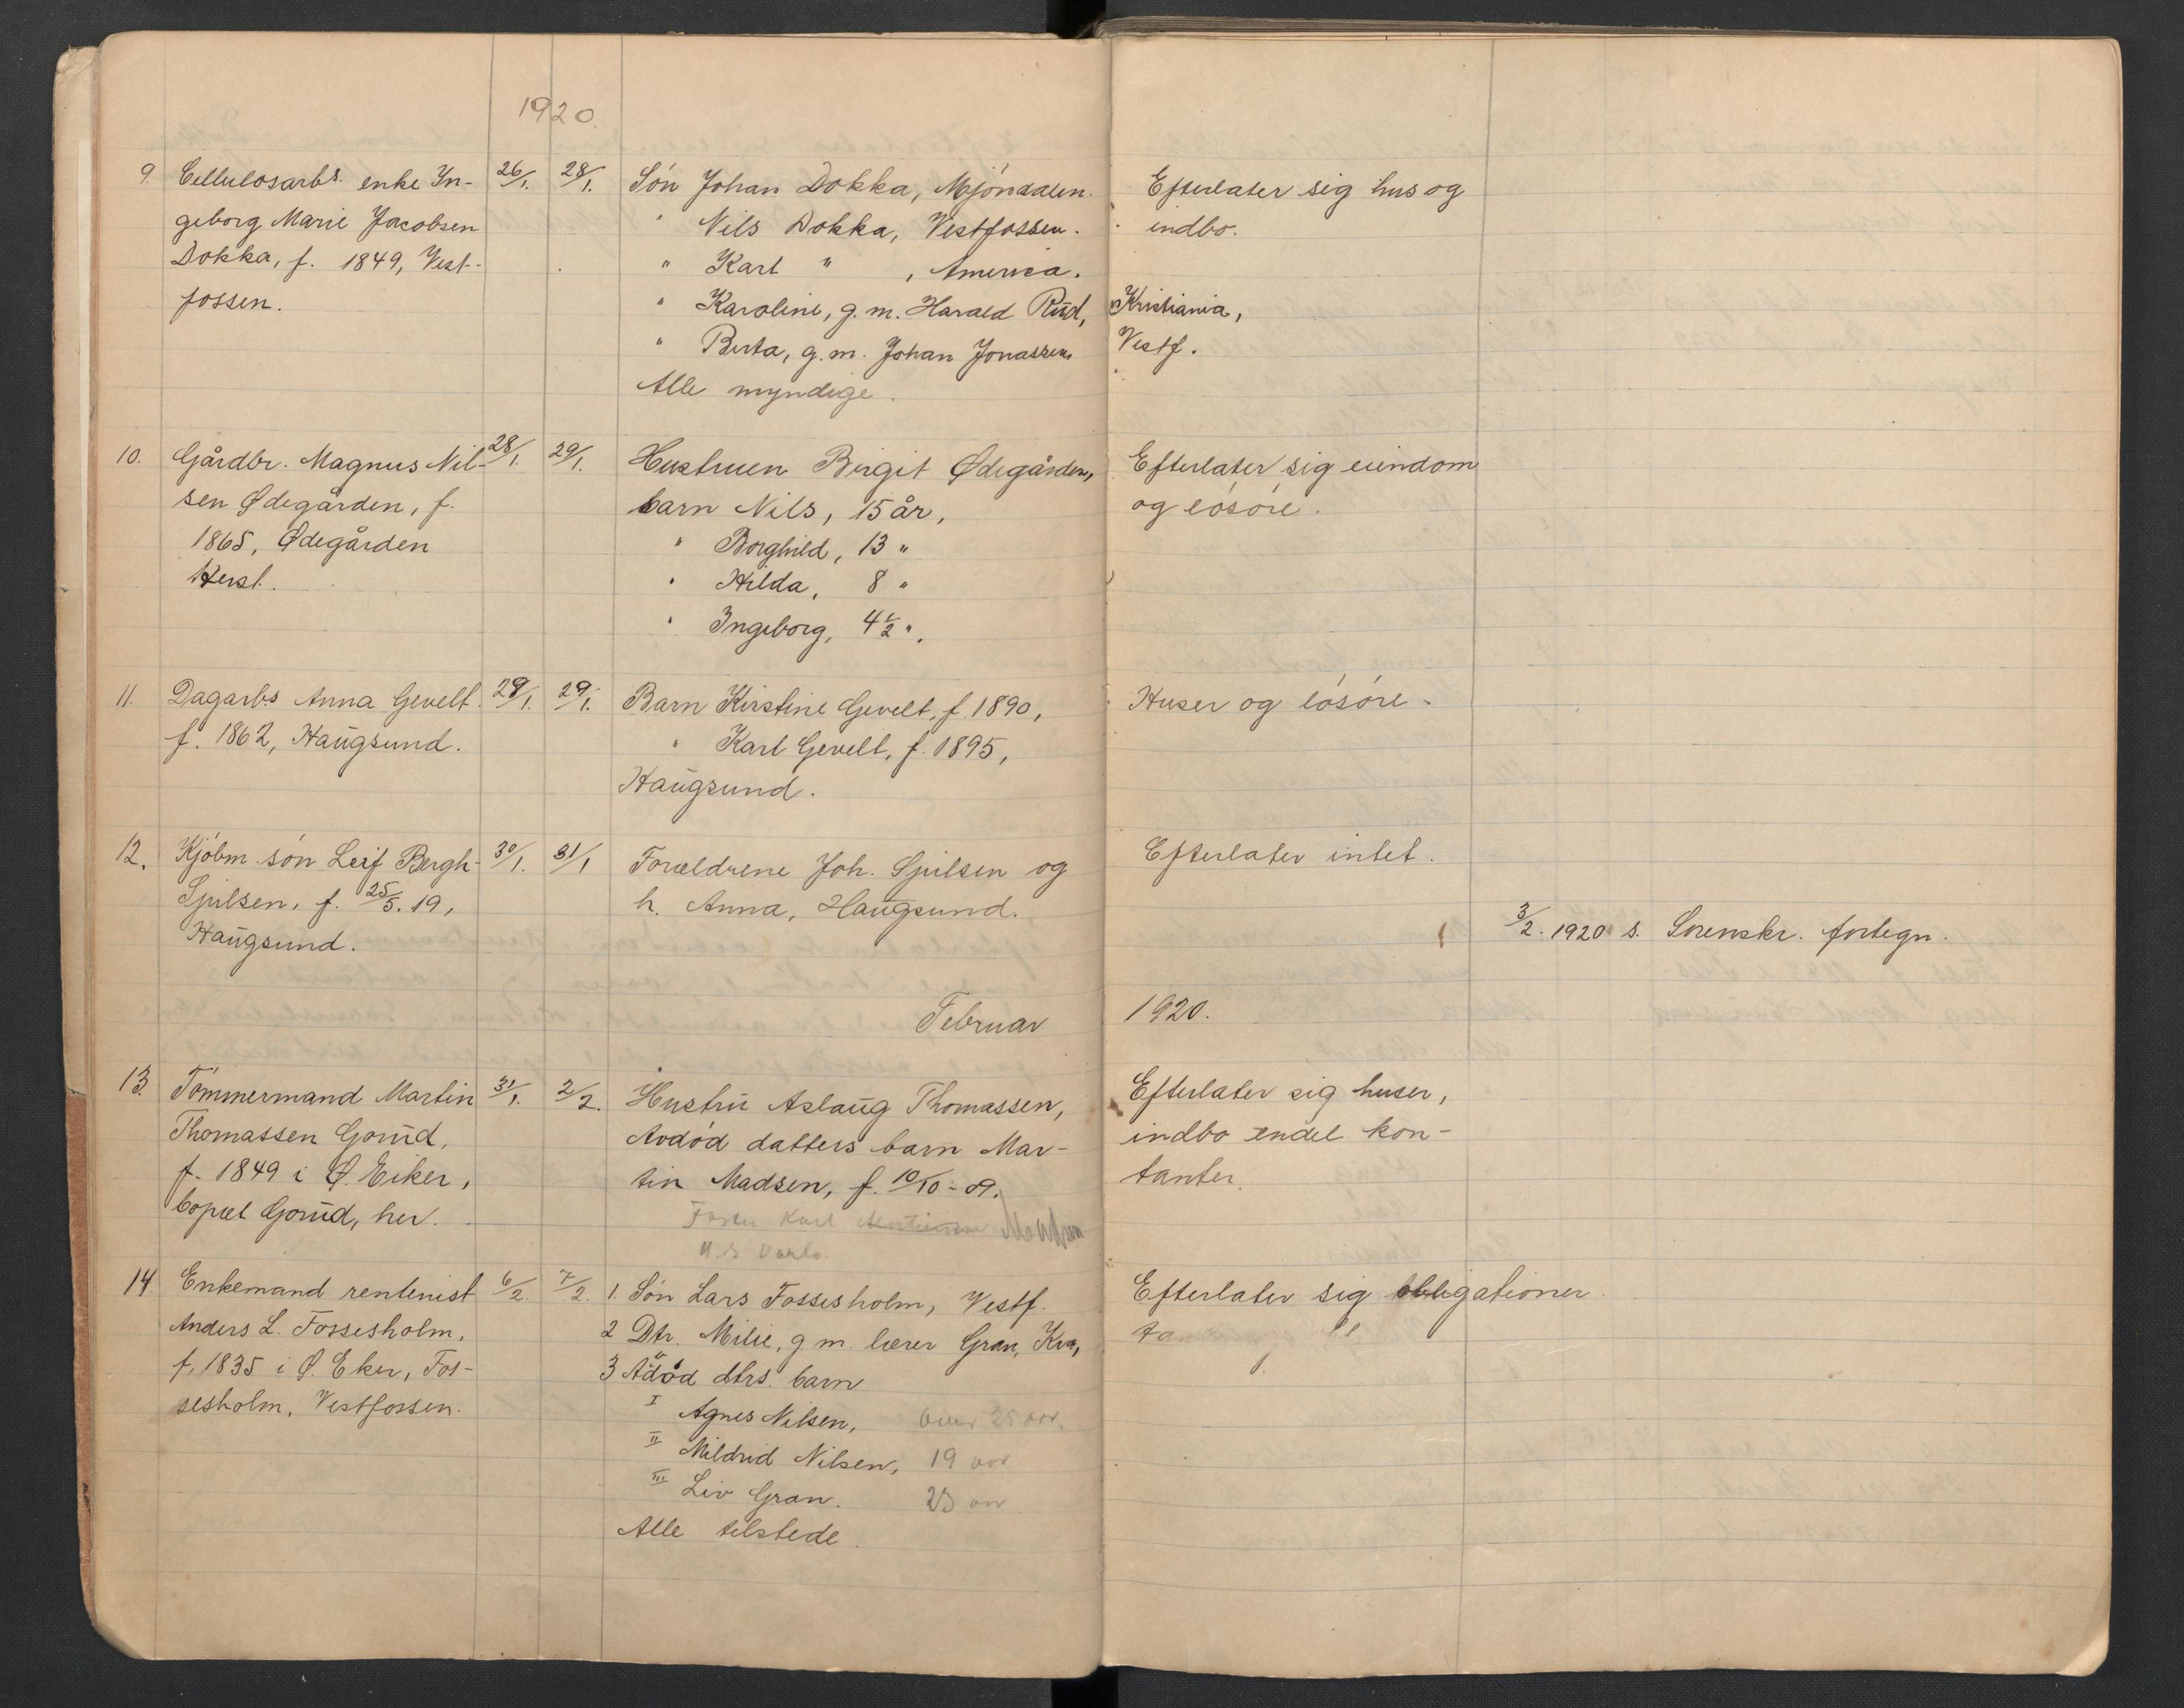 1920.
9. Cellulosarbs. enke In- 26/1. 28/1. Sön Johan Dokka, Mjöndalen. Efterlater sig hus og
geborg Marie Jacobsen " Nils Dokka, Vestfossen. indbo.
Dokka, f. 1849, Vest- " Karl " , America.
fossen. " Karoline, g.m. Harald Rud, Kristiania,
" Berta, g.m. Johan Jonassen Vestf.
Alle myndige.
10. Gårdbr. Magnus Nil- 28/1. 29/1. Hustruen Birgit Ødegården, Efterlater sig eiendom
sen Ødegården, f. barn Nils, 15 år, og lösöre.
1865, Ødegården " Borghild, 13 "
" Hilda, 8 "
" Ingeborg, 4 1/2 ".
11. Dagarbs Anna Gevelt. 29/1. 29/1. Barn Kirstine Gevelt, f. 1890, Huser og lösöre.
f. 1862, Haugsund. " Karl Gevelt, f. 1895,
Haugsund.
12. Kjöbm. sön Leif Bergh- 30/1. 31/1 Forældrene Joh. Gjulsen og Efterlater intet.
Gjulsen, f. 25/5. 19, h. Anna, Haugsund.
Haugsund. 3/2. 1920 s. Sorenskr. fortegn.
Februar 1920.
13. Tömmermand Martin 31/1. 2/2. Hustru Aslaug Thomassen, Efterlater sig huser,
Thomassen Gorud, Avdöd datters barn Mar- indbo endel kon-
f. 1849 i Ø. Eiker, tin Madsen, f. 10/10-09. tanter.
bopæl Gorud, her. Karl Madsen
14. Enkemand rentenist 6/2. 7/2. 1. Sön Lars Fossesholm, Vestf. Efterlater sig obligationer.
Anders L. Fossesholm, 2 Dtr. Milie, g.m. lærer Gran, Kra,
f. 1835 i Ø. Eker, Fos- 3 Adöd dtrs. barn
sesholm, Vestfossen. I Agnes Nilsen, over 25 aar.
II Mildrid Nilsen, 19 aar
III Liv Gran. 23 aar
Alle tilstede.